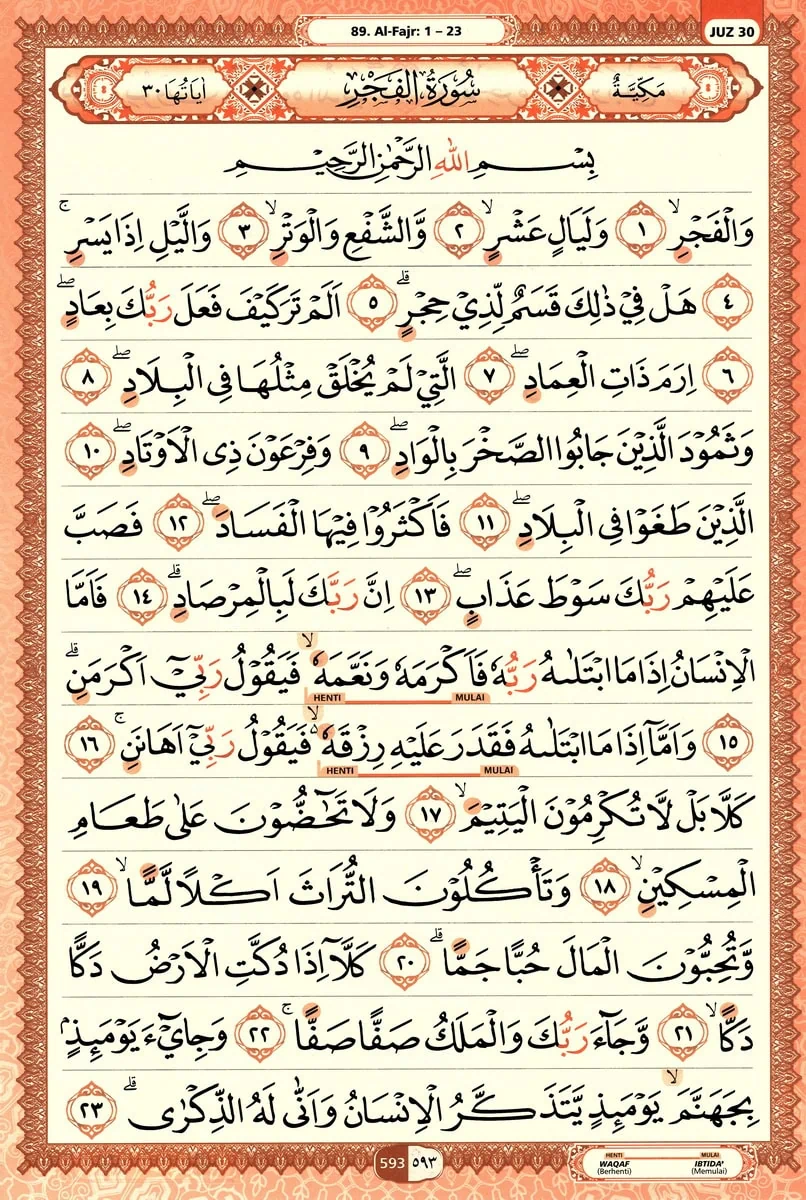 89. Al-Fajr: 1 – 23
JUZ 30
مَكِّيَّةٌ
سُوْرَةُ الْفَجْرِ
اٰيَاتُهَا ٣٠
بِسْمِ اللّٰهِ الرَّحْمٰنِ الرَّحِيْمِ
وَالْفَجْرِۙ ١ وَلَيَالٍ عَشْرٍۙ ٢ وَّالشَّفْعِ وَالْوَتْرِۙ ٣ وَالَّيْلِ اِذَا يَسْرِۚ
٤ هَلْ فِيْ ذٰلِكَ قَسَمٌ لِّذِيْ حِجْرٍۗ ٥ اَلَمْ تَرَ كَيْفَ فَعَلَ رَبُّكَ بِعَادٍۖ
٦ اِرَمَ ذَاتِ الْعِمَادِۖ ٧ الَّتِيْ لَمْ يُخْلَقْ مِثْلُهَا فِى الْبِلَادِۖ ٨
وَثَمُوْدَ الَّذِيْنَ جَابُوا الصَّخْرَ بِالْوَادِۖ ٩ وَفِرْعَوْنَ ذِى الْاَوْتَادِۖ ١٠
الَّذِيْنَ طَغَوْا فِى الْبِلَادِۖ ١١ فَاَكْثَرُوْا فِيْهَا الْفَسَادَۖ ١٢ فَصَبَّ
عَلَيْهِمْ رَبُّكَ سَوْطَ عَذَابٍۖ ١٣ اِنَّ رَبَّكَ لَبِالْمِرْصَادِۗ ١٤ فَاَمَّا
الْاِنْسَانُ اِذَا مَا ابْتَلٰىهُ رَبُّهٗ فَاَكْرَمَهٗ وَنَعَّمَهٗۙ فَيَقُوْلُ رَبِّيْٓ اَكْرَمَنِۗ
HENTI MULAI
١٥ وَاَمَّآ اِذَا مَا ابْتَلٰىهُ فَقَدَرَ عَلَيْهِ رِزْقَهٗ ەۙ فَيَقُوْلُ رَبِّيْٓ اَهَانَنِۚ ١٦
HENTI MULAI
كَلَّا بَلْ لَّا تُكْرِمُوْنَ الْيَتِيْمَۙ ١٧ وَلَا تَحٰۤضُّوْنَ عَلٰى طَعَامِ
الْمِسْكِيْنِۙ ١٨ وَتَأْكُلُوْنَ التُّرَاثَ اَكْلًا لَّمًّاۙ ١٩
وَّتُحِبُّوْنَ الْمَالَ حُبًّا جَمًّاۗ ٢٠ كَلَّآ اِذَا دُكَّتِ الْاَرْضُ دَكًّا
دَكًّاۙ ٢١ وَّجَاۤءَ رَبُّكَ وَالْمَلَكُ صَفًّا صَفًّاۚ ٢٢ وَجِايْۤءَ يَوْمَىِٕذٍۢ
بِجَهَنَّمَۙ يَوْمَىِٕذٍ يَّتَذَكَّرُ الْاِنْسَانُ وَاَنّٰى لَهُ الذِّكْرٰىۗ ٢٣
593 ٥٩٣
HENTI MULAI
WAQAF IBTIDA'
(Berhenti) (Memulai)